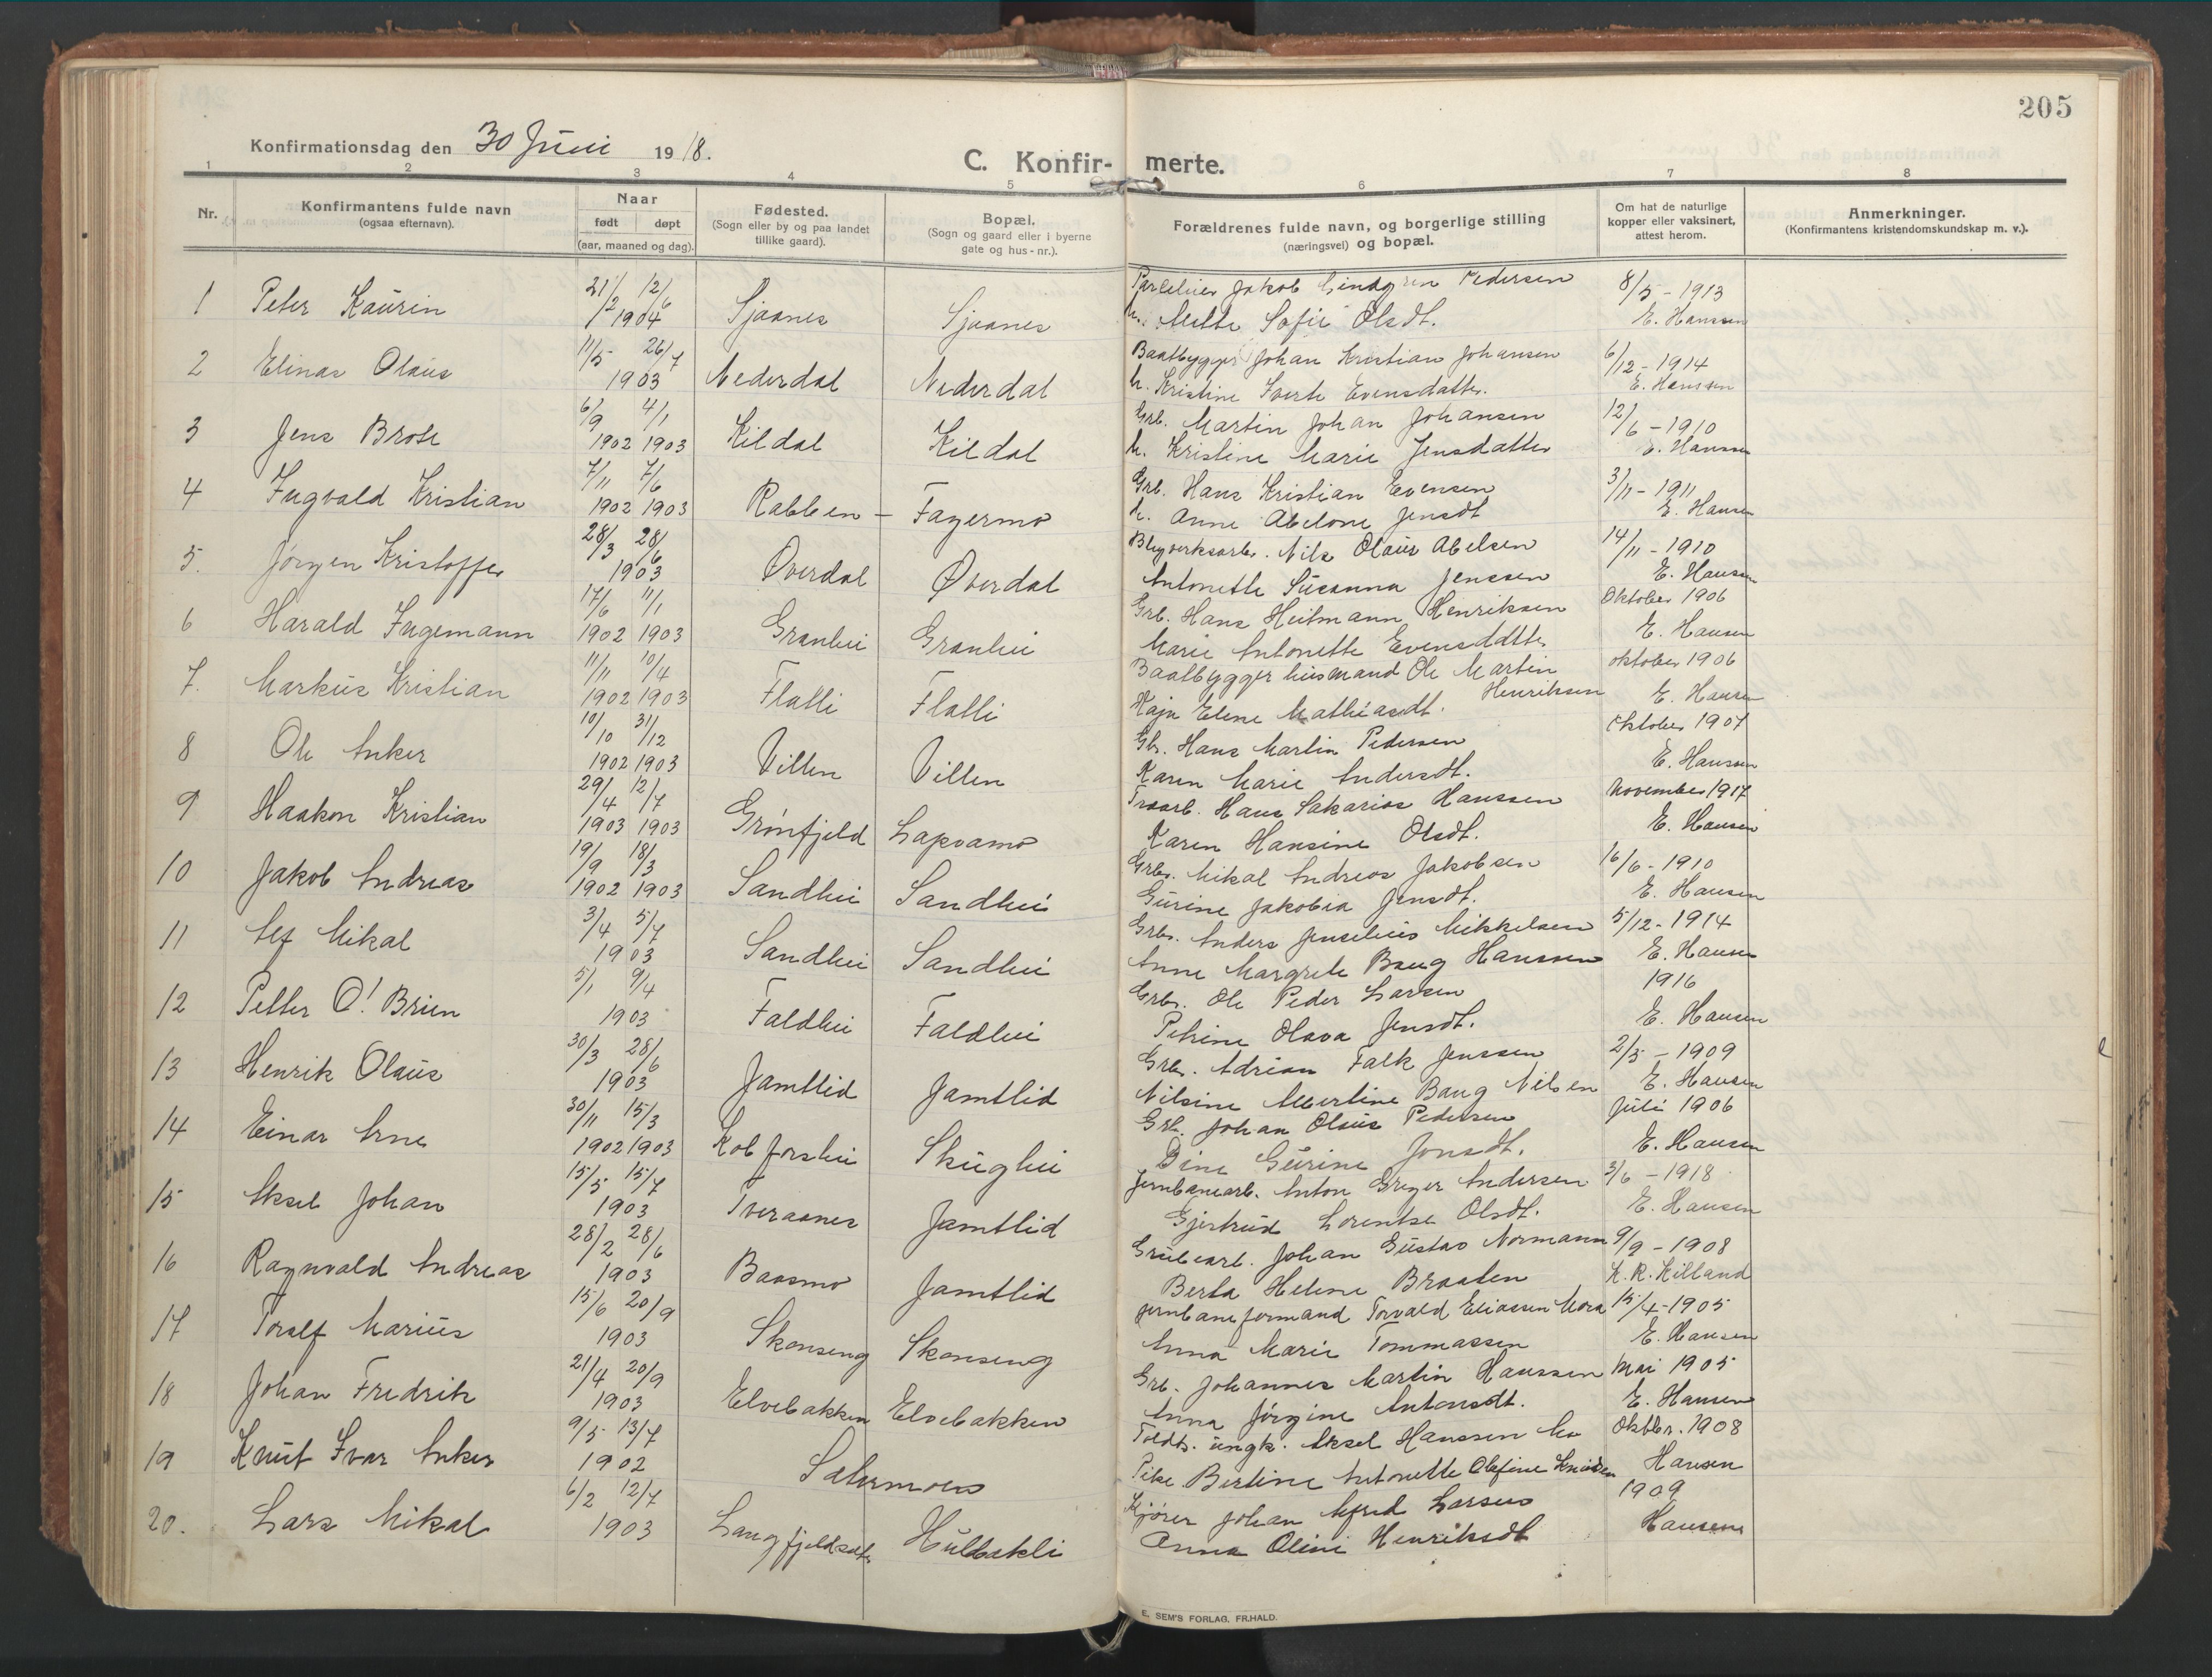 205
Konfirmationsdag den 30 Juni 1918.
C. Konfir- merte.
1 2 3 4 5 6 7 8
Nr. Konfirmantens fulde navn (ogsaa efternavn). Naar født døpt (aar, maaned og dag). Fødested. (Sogn eller by og paa landet tillike gaard). Bopæl. (Sogn og gaard eller i byerne gate og hus-nr.). Forældrenes fulde navn, og borgerlige stilling (næringsvei) og bopæl. Om hat de naturlige kopper eller vaksinert, attest herom. Anmerkninger. (Konfirmantens kristendomskundskap m. v.).
1 Peter Kaurin 21/2 12/6 1904 Sjaanes Sjaanes Jakob Lindgren Pedersen 8/5 - 1913
h. Mette Sofie Olsdt. E. Hanssen
2 Elinar Olaus 11/5 26/7 1903 Nederdal Nederdal Baatbygger Johan Kristian Johansen 6/12 - 1914
h. Kristine Sverte Evensdatter. E. Hanssen
3 Jens Brose 6/9 4/1 1902 1903 Kildal Kildal Grb. Martin Johan Johansen 12/6 - 1910
h. Kristine Marie Jensdatter E. Hanssen
4 Ingvald Kristian 7/11 7/6 1902 1903 Rabben - Fagermo Grb. Hans Kristian Evensen 3/11 - 1911
h. Anne Abelone Jensdt E. Hansen
5. Jørgen Kristoffer 28/3 28/6 1903 Øverdal Øverdal Blyverksarb. Nils Olaus Abelsen 14/11 - 1910
Antonette Susanna Jenssen E. Hansen
6 Harald Ingemann 17/6 11/1 1902 1903 Granhei Granhei Grb. Hans Heitmann Henriksen Oktober 1906
Marie Antonette Evensdatter E. Hansen
7. Markus Kristian 11/11 10/4 1902 1903 Flatli Flatli Baatbygger husmand Ole Martin Henriksen oktober 1906
Kaja Elene Mathiasdt. E. Hansen
8 Ole Anker 10/10 31/12 1902 1903 Villen Villen Gb. Hans Martin Pedersen Oktober 1907
Karen Marie Andersdt. E. Hanssen
9 Haakon Kristian 29/4 12/7 1903 1903 Grønfjeld Lapvamo Hans Sakarias Hanssen November 1917
Karen Hansine Olsdt. E. Hansen
10 Jakob Andreas 19/9 18/3 1902 1903 Sandhei Sandhei Grb. Mikal Andreas Jakobsen 16/6 - 1910
Gurine Jakobia Jensdt. E. Hansen
11 Alf Mikal 3/4 5/7 1903 Sandhei Sandhei Grb. Anders Jenselius Mikkelsen 5/12 - 1914
Anne Margrete Baug Hanssen E. Hansen
12 Petter O! Brien 5/1 9/4 1903 Faldhei Faldhei Grb. Ole Peder Larsen 1916
Petrine Olava Jensdt. E. Hansen
13 Henrik Olaus 30/3 28/6 1903 Jamtlid Jamtlid Grb. Adrian Falk Jenssen 2/5 - 1909
Nilsine Albertine Baug Nilsen E. Hansen
14 Einar Arne 30/11 15/3 1902 1903 Kobforshei Skughei Grb. Johan Olaus Pedersen Juli 1906
Dine Gurine Jonsdt. E. Hansen
15 Aksel Johan 15/5 15/7 1903 Tveraanes Jamtlid Jernbanearb. Anton Greger Andersen 3/6 - 1918
Gjertrud Lorentse Olsdt. E. Hansen
16 Ragnvald Andreas 28/2 28/6 1903 Baasmo Jamtlid Grubearb. Johan Gustav Normann 9/9 - 1908
Berta Helene Braaten K. R. Killand
17 Toralf Marius 15/6 20/9 1903 Skonseng Skonseng Jernbaneformand Torvald Eliassen Mora 15/4 - 1905
Anna Marie Tommassen E. Hansen
18 Johan Fredrik 21/4 20/9 1903 Elvebakken Elvebakken Grb. Johannes Martin Hanssen Mai 1905
Anna Jørgine Antonsdt. E. Hansen
19 Knut Ivar Anker 9/5 13/7 1902 Sætermoen Toldb. ungk. Aksel Hanssen Mo Oktbr. 1908
Pike Bertine Antonette Olefine Knudsen Hansen
20. Lars Mikal 6/2 12/7 1903 Langfjeldsæter Hulbakli Kjører Johan Alfred Larsen 1909
Anna Oline Henriksdt Hansen
E. SEM'S FORLAG, FR.HALD.